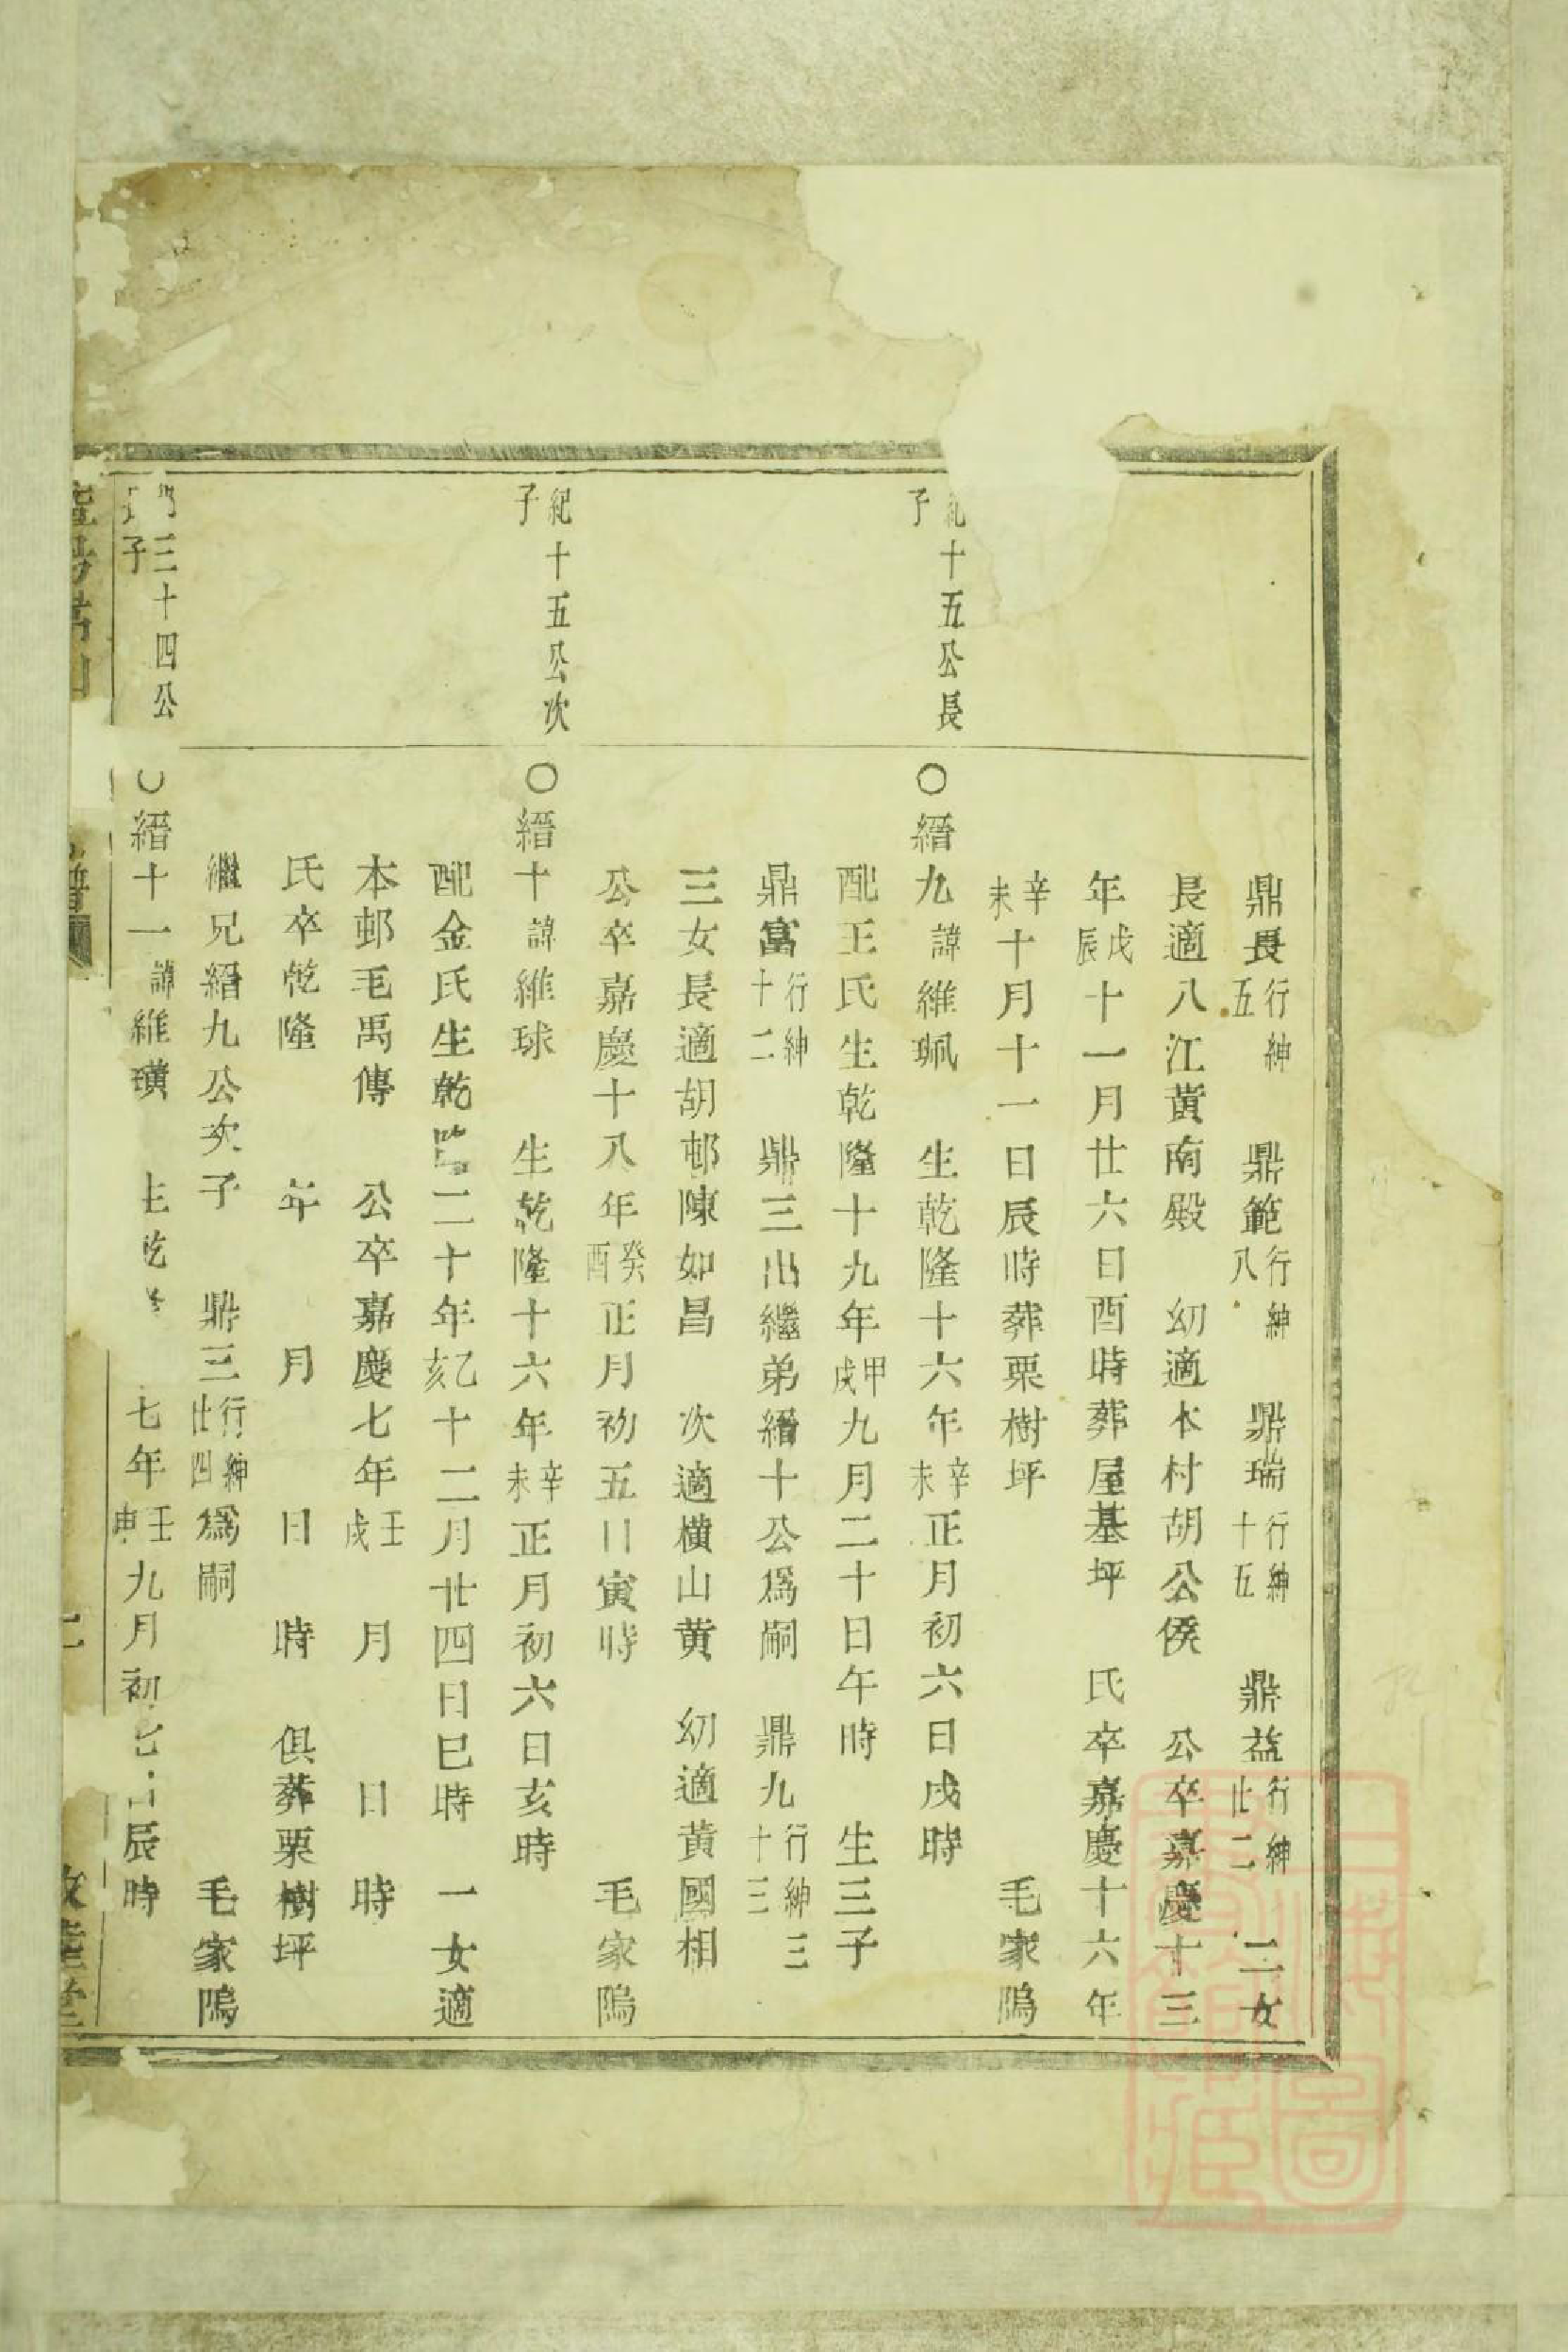 鼎長行紳五 鼎範行紳八 鼎瑞行紳十五 鼎益行紳廿二 二女
長適八江黃南殿 幼適本村胡公俟 公卒嘉慶十三
年戊辰十一月廿六日酉時葬屋基坪 氏卒嘉慶十六年
辛未十月十一日辰時葬栗樹坪 毛家隖
紀十五公長子
○縉九諱維珮 生乾隆十六年辛未正月初六日戌時
配王氏生乾隆十九年甲戌九月二十日午時 生三子
鼎富行紳十二 鼎三出繼弟縉十公爲嗣 鼎九行紳十三 三
三女長適胡邨陳如昌 次適橫山黃 幼適黃國相
公卒嘉慶十八年癸酉正月初五日寅時 毛家隖
紀十五公次子
○縉十諱維球 生乾隆十六年辛未正月初六日亥時
配金氏生乾隆二十年乙亥十二月廿四日巳時 一女適
本邨毛禹傳 公卒嘉慶七年壬戌 月 日 時
氏卒乾隆 年 月 日 時 俱葬栗樹坪
繼兄縉九公次子 鼎三行紳廿四爲嗣 毛家隖
三十四公 子
○縉十一諱維璜 生乾 七年壬申九月初七日辰時
譜
敦睦堂